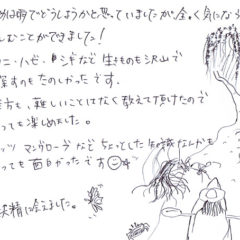 は雨でどうしようかと思っていましたが全く気になら
しむことができました!
ニ・ハゼ・貝など生きものも沢山で
探すのもたのしかったです。
方も、難しいことはなく教えて頂けたので
っても楽しめました。
ッツ マングローブなどちょっとした知識なんかも
っても面白かったです
妖精に会えました。